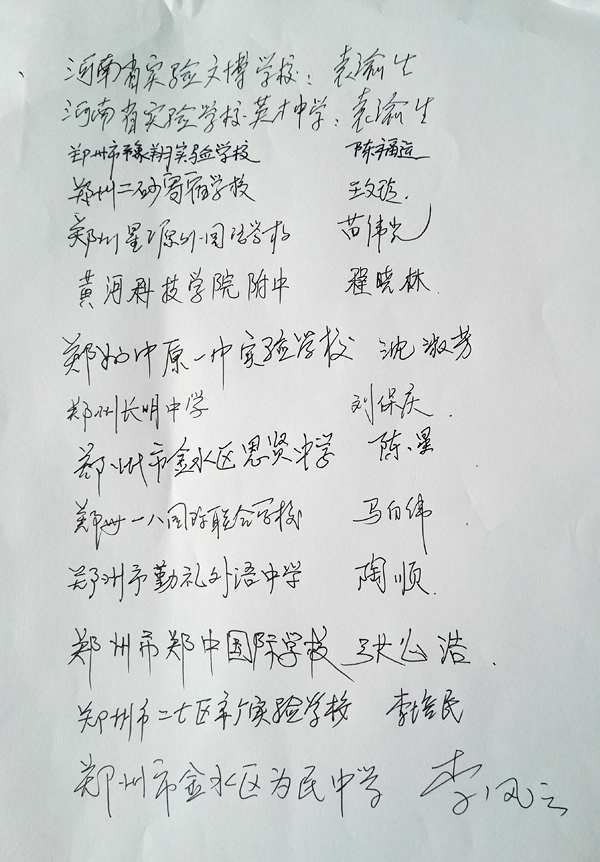 河南省实验文博学校：袁瑜生
河南省实验学校英才中学：袁瑜生
郑州市豫翔实验学校 陈福运
郑州二砂寄宿学校 王文
郑州星源外国语学校 苗伟光
黄河科技学院附中 程晓林
郑州中原一中实验学校 沈淑芳
郑州长明中学 刘保庆
郑州市金水区思贤中学 陈星
郑州一八国际联合学校 马向伟
郑州市勤礼外语中学 陶顺
郑州市郑中国际学校 张浩
郑州市二七区实验学校 李培民
郑州市金水区为民中学 李凤云